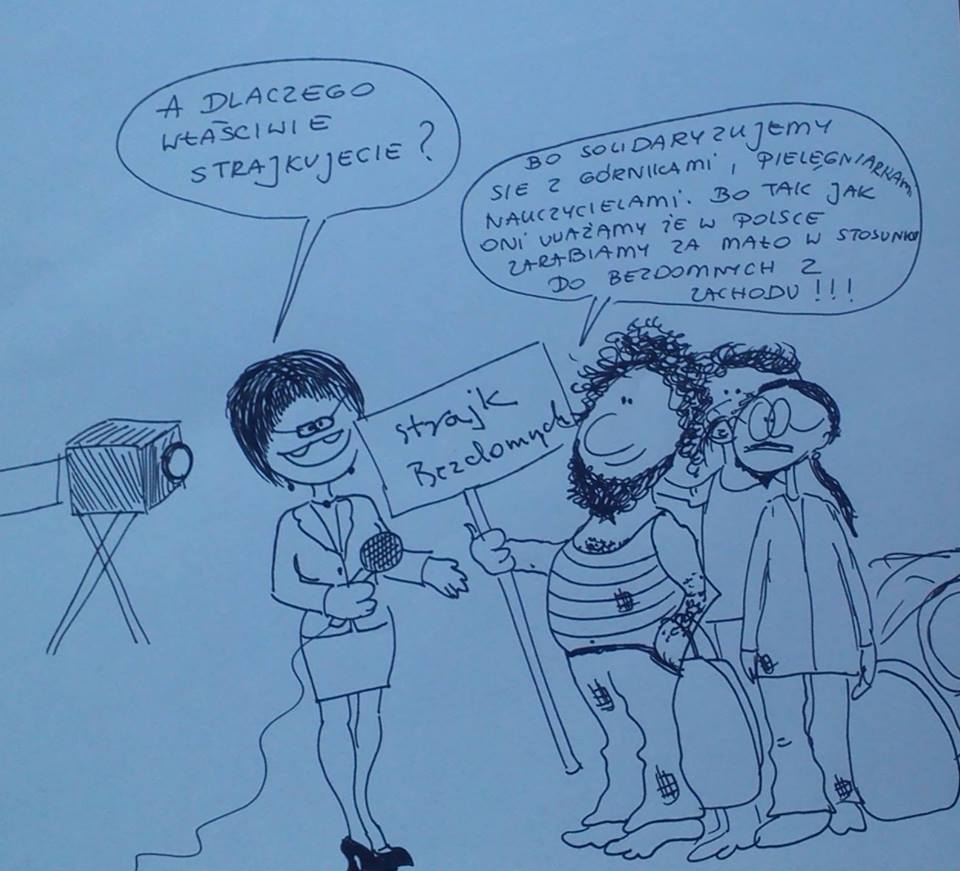 A DLACZEGO
WŁAŚCIWIE
STRAJKUJECIE?
BO SOLIDARYZUJEMY
SIE Z GÓRNIKAMI, PIELĘGNIARKAMI
NAUCZYCIELAMI. BO TAK JAK
ONI UWAŻAMY ŻE W POLSCE
ZARABIAMY ZA MAŁO W STOSUNKU
DO BEZDOMNYCH Z
ZACHODU!!!
strajk
Bezdomnych